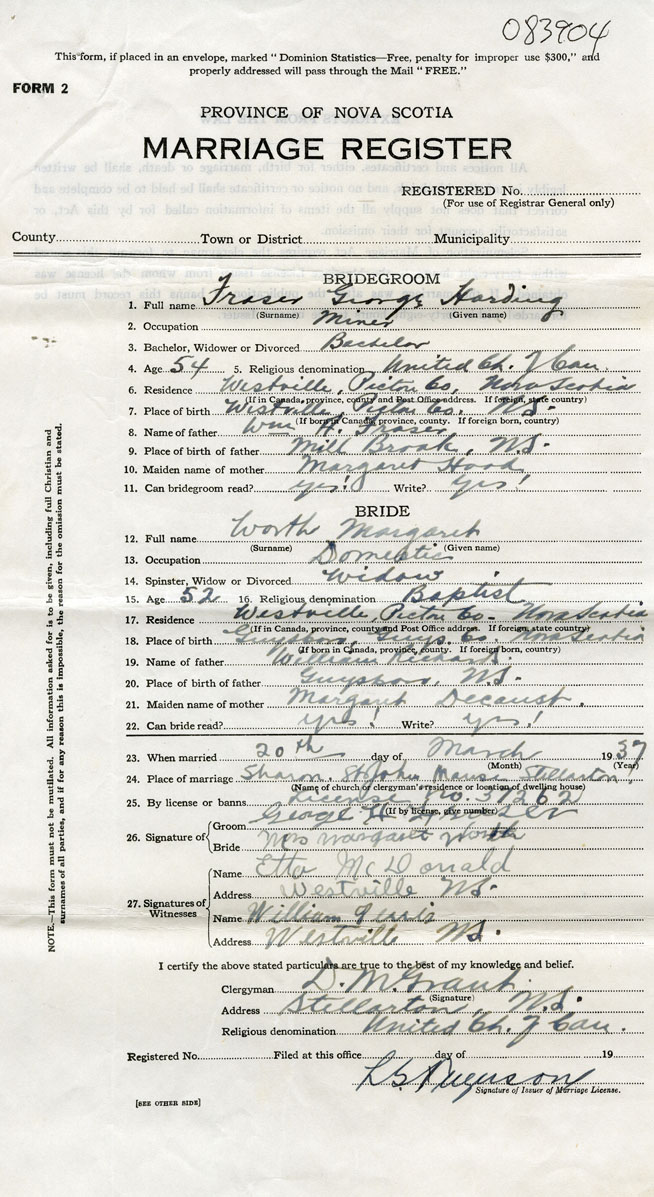 083904
This form, if placed in an envelope, marked "Dominion Statistics—Free, penalty for improper use $300," and
properly addressed will pass through the Mail "FREE."
FORM 2
PROVINCE OF NOVA SCOTIA
MARRIAGE REGISTER
REGISTERED No.
(For use of Registrar General only)
County Town or District Municipality
BRIDEGROOM
1. Full name Fraser George Harding
(Surname) (Given name)
2. Occupation Miner
3. Bachelor, Widower or Divorced Bachelor
4. Age 54 5. Religious denomination United Ch. of Can.
6. Residence Westville, Pictou Co., Nova Scotia
(If in Canada, province, county and Post Office address. If foreign, state country)
7. Place of birth Westville, Pictou Co. N.S.
(If born in Canada, province, county. If foreign born, country)
8. Name of father Wm H. Fraser
9. Place of birth of father Mill Brook, N.S.
10. Maiden name of mother Margaret Hood
11. Can bridegroom read? yes! Write? yes!
BRIDE
12. Full name Worth Margaret
(Surname) (Given name)
13. Occupation Domestic
14. Spinster, Widow or Divorced Widow
15. Age 52 16. Religious denomination Baptist
17. Residence Westville, Pictou Co. Nova Scotia
(If in Canada, province, county and Post Office address. If foreign state country)
18. Place of birth Guys. Co. Nova Scotia
(If born in Canada, province, county. If foreign born, country)
19. Name of father William
20. Place of birth of father N.S.
21. Maiden name of mother Margaret
22. Can bride read? yes! Write? yes!
23. When married 20th day of March 1937
(Month) (Year)
24. Place of marriage Sharon. St John Manse Stellarton
(Name of church or clergyman's residence or location of dwelling house)
25. By license or banns License No.
(If by license, give number)
26. Signature of Groom George H
Bride Mrs Margaret Worth
27. Signatures of Witnesses
Name Etta McDonald
Address Westville N.S.
Name William
Address Westville N.S.
I certify the above stated particulars are true to the best of my knowledge and belief.
Clergyman D. M. Grant
(Signature)
Address Stellarton N.S.
Religious denomination United Ch. of Can.
Registered No. Filed at this office day of 19
Ferguson
Signature of Issuer of Marriage License.
[SEE OTHER SIDE]
NOTE.—This form must not be mutilated. All information asked for is to be given, including full Christian and
surnames of all parties, and if for any reason this is impossible, the reason for the omission must be stated.